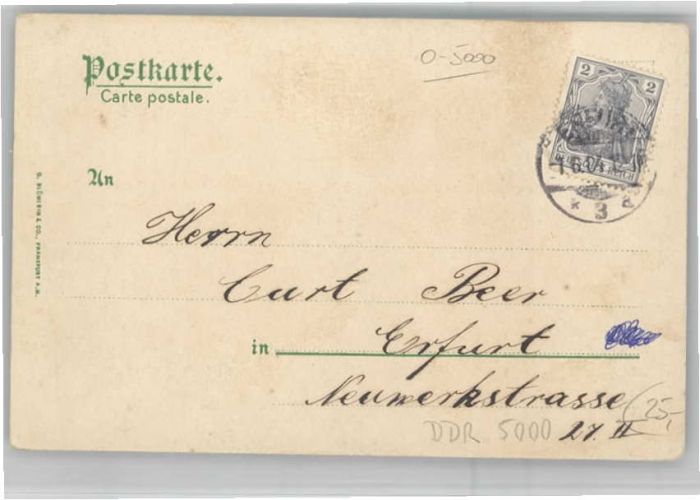 O-5000
Postkarte.
Carte postale.
2 2
1.6.04
* 3 a
An
Herrn
Curt Beer
in Erfurt
Neuwerkstrasse
27. II
25,-
DDR 5000